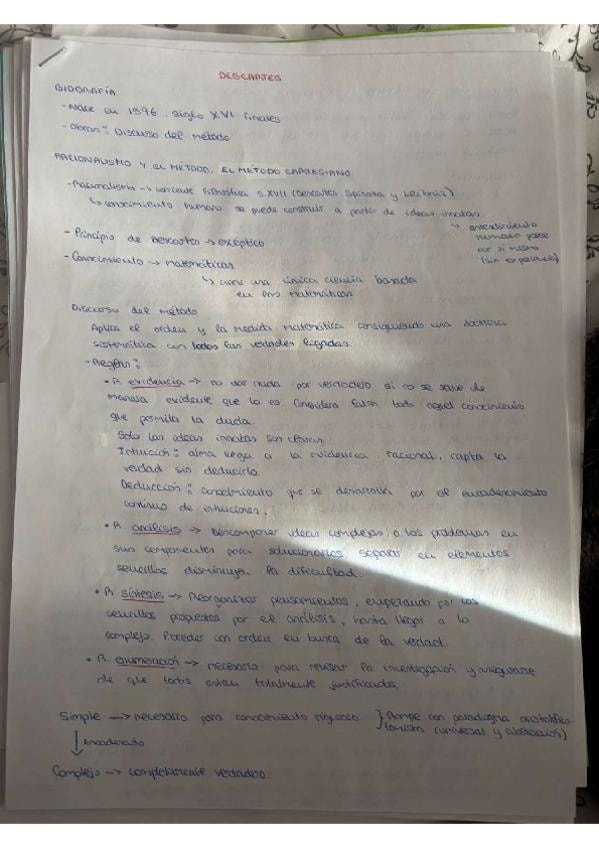 DESCARTES
BIOGRAFÍA
- Nace en 1596. Siglo XVI finales
- Obras: Discurso del método
RACIONALISMO Y EL MÉTODO, EL MÉTODO CARTESIANO
- Racionalismo → corriente filosófica s. XVII (Descartes, Spinoza y Leibniz)
↳ conocimiento humano se puede construir a partir de ideas innatas
↳ entendimiento
humano posee
por si mismo
(sin experiencia)
- Principio de Descartes → escéptico
- Conocimiento → matemáticas
↳ crear una única ciencia basada
en las matemáticas.
Discurso del método
Aplica el orden y la medida matemática consiguiendo una doctrina
sistemática con todas las verdades ligadas.
- Reglas:
• R. evidencia → no dar nada por verdadero si no se sabe de
manera evidente que lo es. Considera falso todo aquel conocimiento
que permita la duda.
Solo las ideas innatas son ciertas
Intuición: alma llega a la evidencia, racional, capta la
verdad sin deducirla.
Deducción: conocimiento que se desarrolla por el encadenamiento
continuo de intuiciones.
• R. análisis → Descomponer ideas complejas, o los problemas en
sus componentes para solucionarlos separar en elementos
sencillos disminuye la dificultad.
• R. síntesis → Reorganizar pensamientos, empezando por los
sencillos propuestos por el análisis, hasta llegar a lo
complejo. Proceder con orden en busca de la verdad.
• R. enumeración → necesario para revisar la investigación y asegurarse
de que todos esten totalmente justificados.
Simple → necesario para conocimiento riguroso } Rompe con paradigma aristotélico-
tomista (universal y abstracción)
↓ Encadenado
Complejo → completamente verdadero.